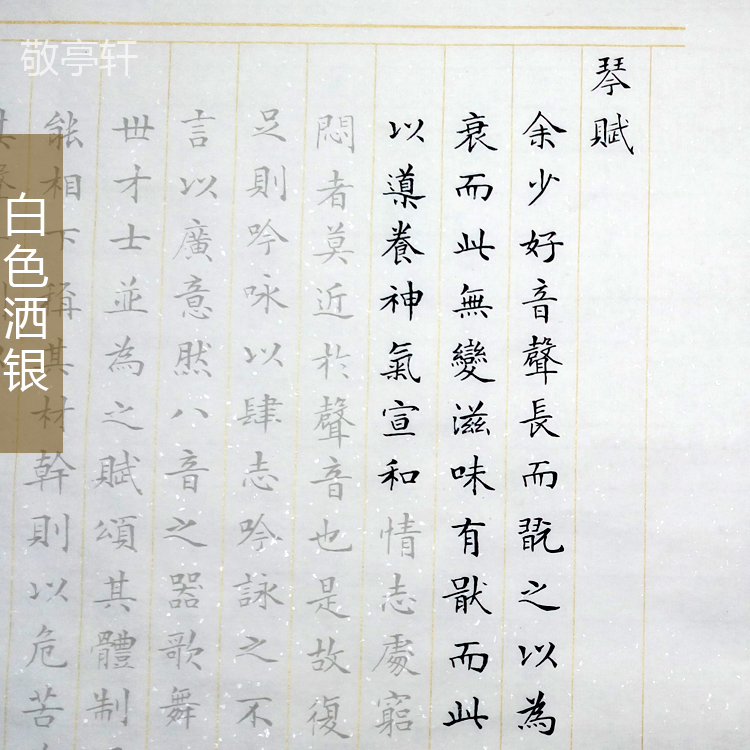 敬亭轩
白色洒银
琴賦
余少好音聲長而翫之以為
衰而此無變滋味有猒而此
以導養神氣宣和情志處窮
悶者莫近於聲音也是故復
足則吟咏以肆志吟詠之不
言以廣意然八音之器歌舞
丗才士並為之賦頌其體制
相稱其材幹則以危苦